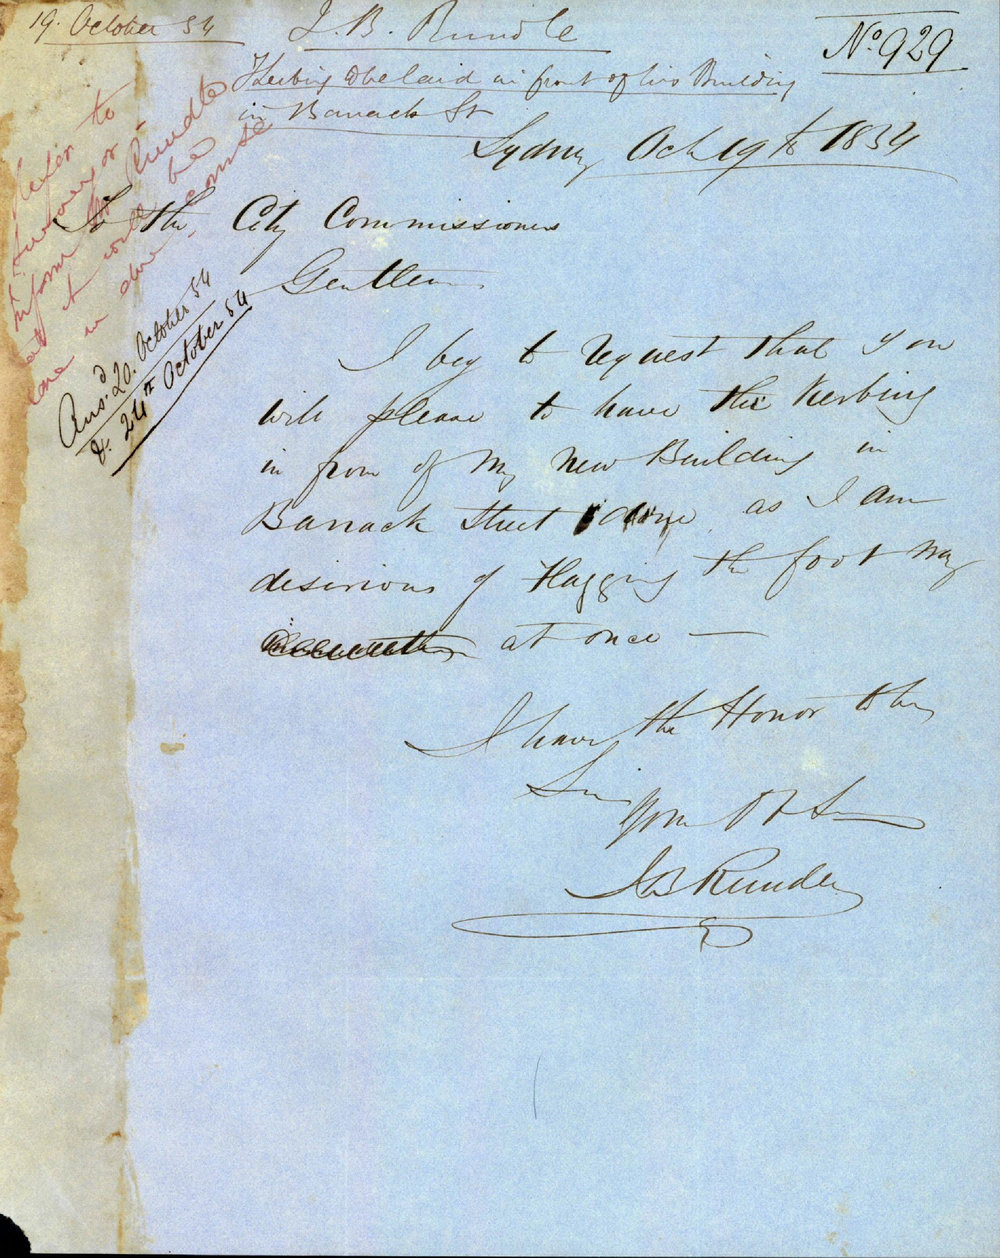 19. October 54
J. B. Rundle
No 929
Kerbing to be laid in front of his Building
in Barrack St
Sydney Oct 19th 1854
To the City Commissioners
Gentlemen
I beg to request that you
will please to have the Kerbing
in fron of my new Building in
Barrack Street done, as I am
desirious of Flagging the foot way
at once —
I have the Honor to be
Sirs
Your Obt Sert
J B Rundle
Refer to
Surveyor to
inform Mr Rundle
that it will be
done in due course
Ansd. 20. October 54
&. 24th October 54